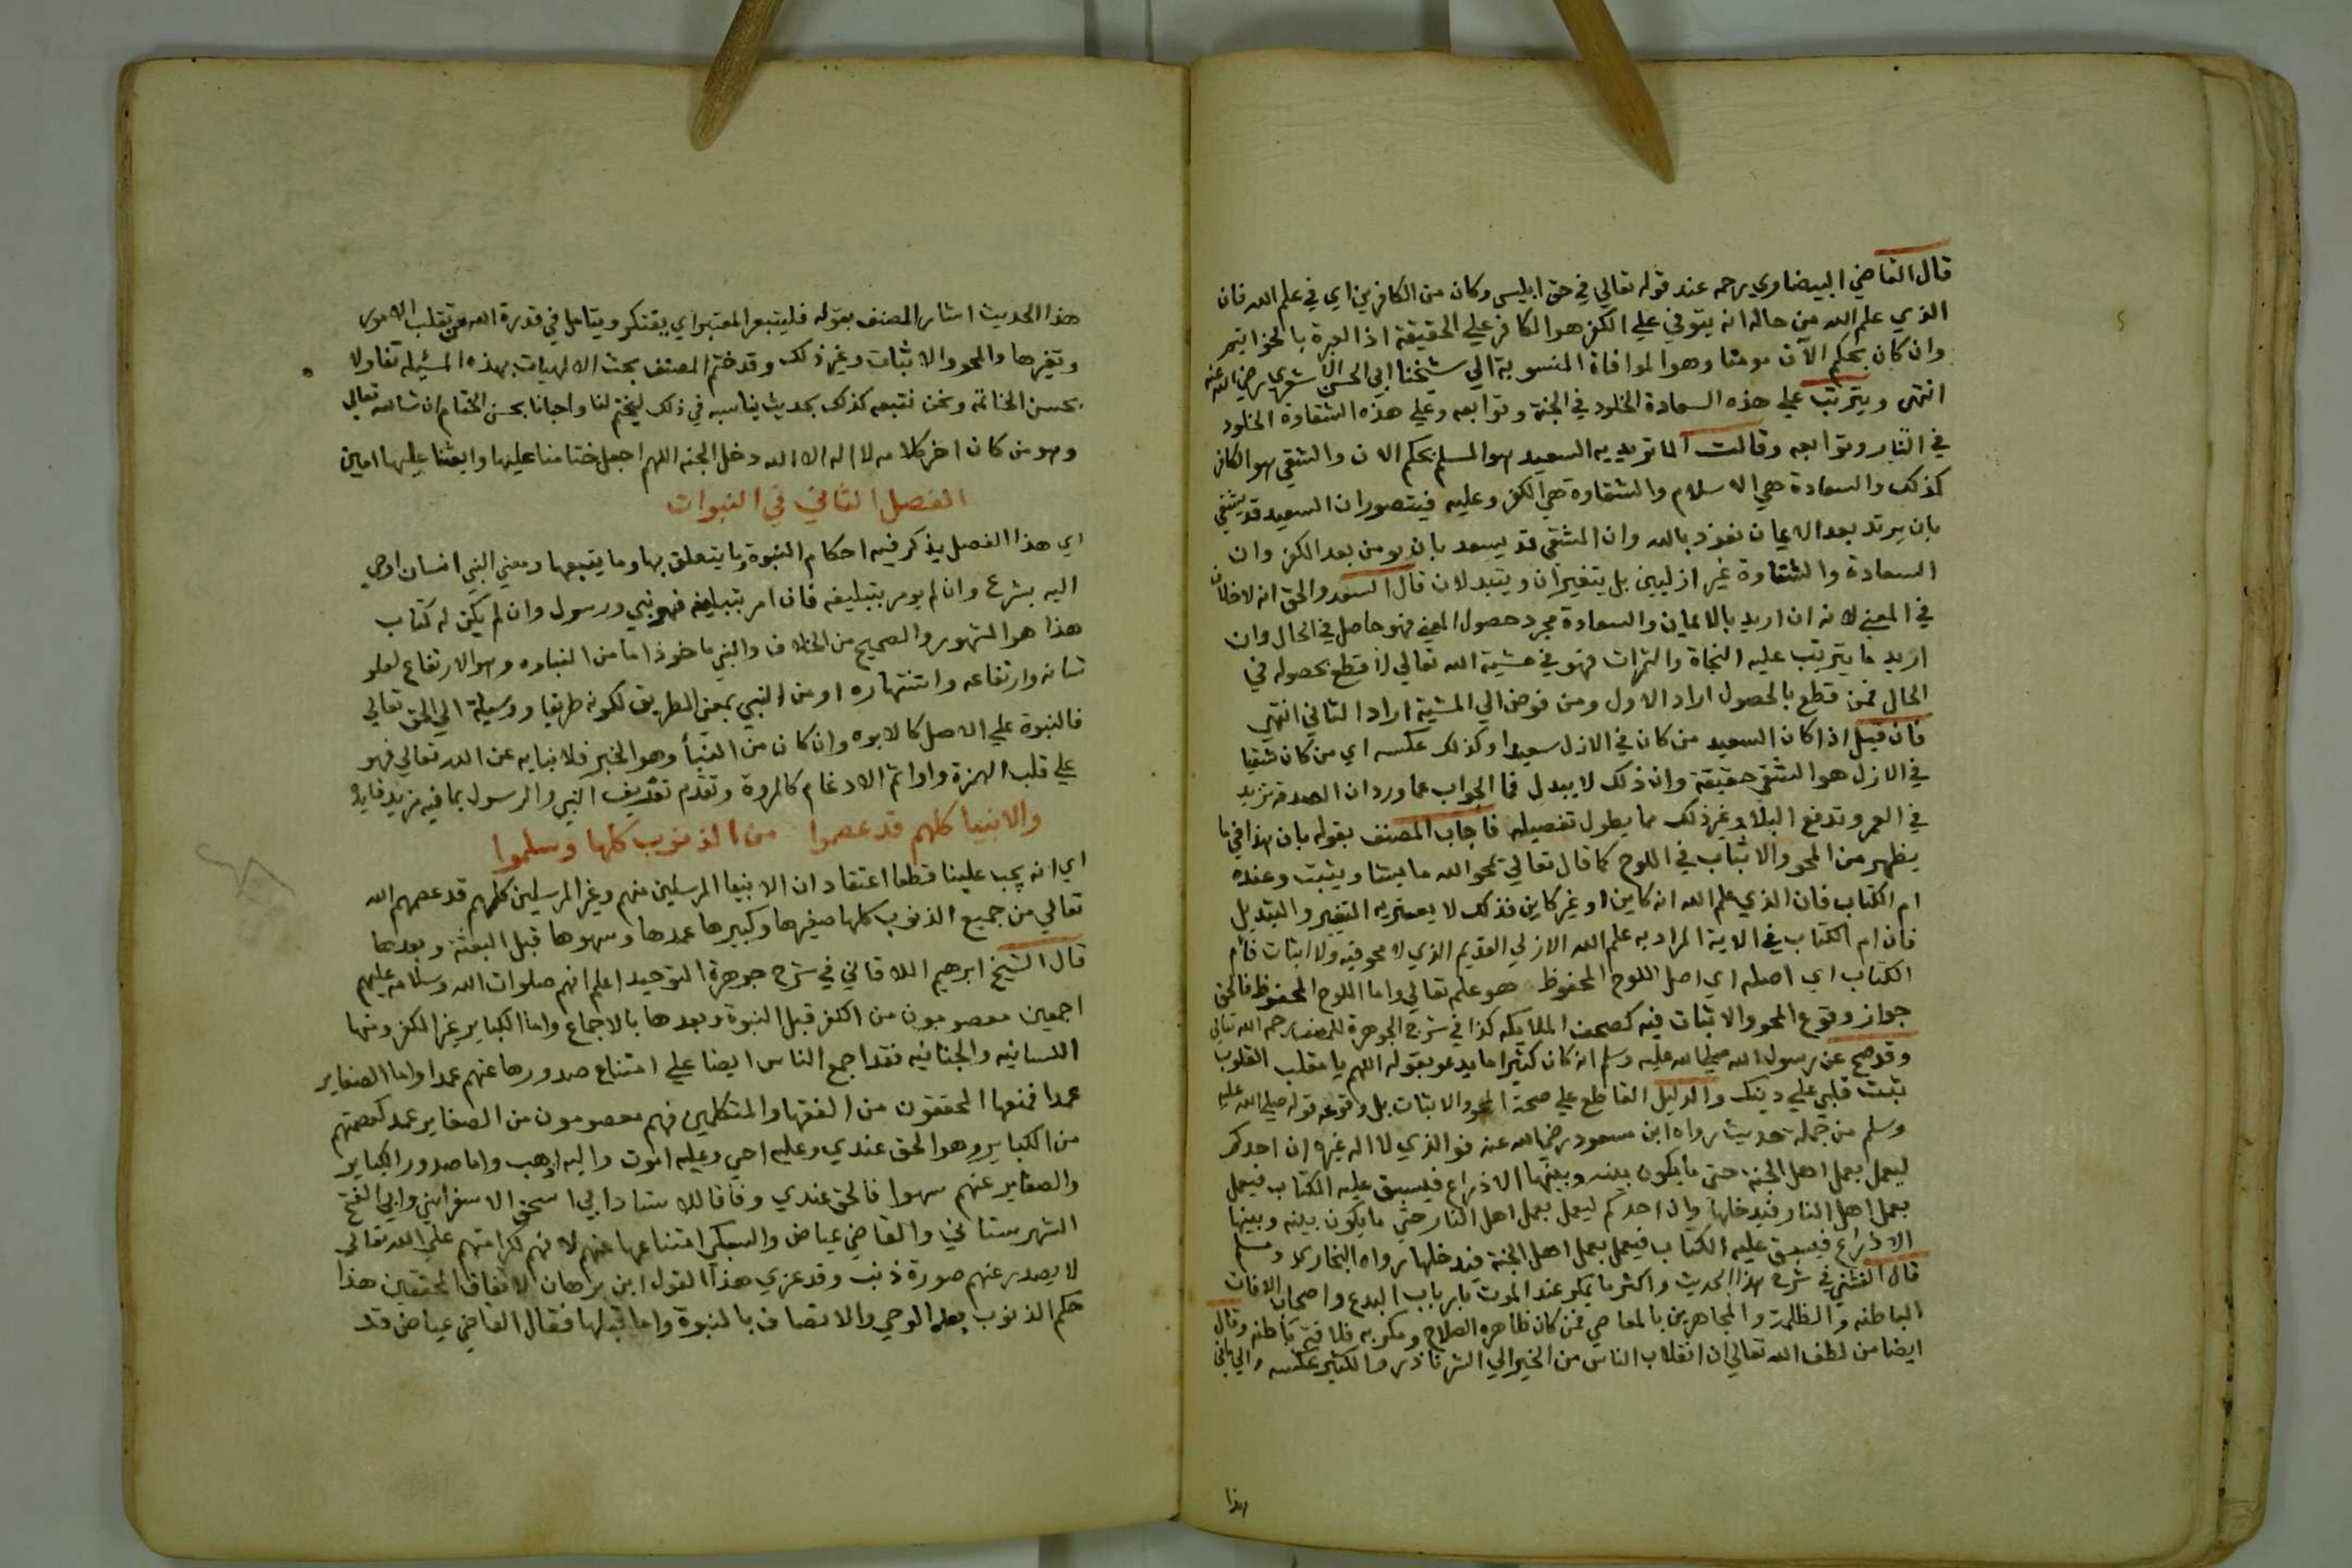 قال القاضي البيضاوي رحمه عند قوله تعالي في حق ابليس وكان من الكافرين اي في علم الله فان
الذي علم الله من حاله انه يتوفي علي الكفر هو الكافر علي الحقيقة اذ العبرة بالخواتيم
وان كان بحكم الآن مومنا وهو الموافاة المنسوبة الي شيخنا ابي الحسن الاشعري رضي الله عنه
انتهي ويترتب علي هذه السعادة الخلود في الجنة وتوابعه وعلي هذه الشقاوة الخلود
في النار وتوابعه وقالت الماتريديه السعيد هو المسلم بحكم الان والشقي هو الكافر
كذلك والسعادة هي الاسلام والشقاوة هي الكفر وعليه فيتصور ان السعيد قد يشقي
بان يرتد بعد الايمان نعوذ بالله وان الشقي قد يسعد بان يومن بعد الكفر وان
السعادة والشقاوة غير ازليين بل يتغيران ويتبدلان قال السعد والحق انه لا خلاف
في المعني لانه ان اريد بالايمان والسعادة مجرد حصول المعني فهو حاصل في الحال وان
اريد ما يترتب عليه النجاة والثمرات فهو في مشية الله تعالي لا قطع بحصوله في
الحال فمن قطع بالحصول اراد الاول ومن فوض الي المشية اراد الثاني انتهي
فان قيل اذا كان السعيد من كان في الازل سعيدا وكذلك عكسه اي من كان شقيا
في الازل هو الشقي حقيقة وان ذلك لا يبدل فما الجواب عما ورد ان الصدقة تزيد
في العمر وتدفع البلا وغير ذلك مما يطول تفصيله فاجاب المصنف بقوله بان هذا في ما
يظهر من المحو والاثبات في اللوح كما قال تعالي يمحو الله ما يشا ويثبت وعنده
ام الكتاب فان الذي علم الله انه كاين او غير كاين فذلك لا يعتريه التغير والتبديل
فان ام الكتاب في الاية المراد به علم الله الازلي القديم الذي لا محو فيه ولا اثبات فام
الكتاب اي اصله اي اصل اللوح المحفوظ هو علم تعالي واما اللوح المحفوظ فالحق
جواز وقوع المحو والاثبات فيه كصحف الملايكه كذا في شرح الجوهرة للمصنف رحمه الله تعالي
وقد صح عن رسول الله صلي الله عليه وسلم انه كان كثيرا ما يدعو بقوله اللهم يا مقلب القلوب
ثبت قلبي علي دينك والدليل القاطع علي صحة المحو والاثبات بل وقوعه قوله صلي الله عليه
وسلم من جملة حديث رواه ابن مسعود رضي الله عنه فو الذي لا اله غيره ان احدكم
ليعمل بعمل اهل الجنة حتي ما يكون بينه وبينها الا ذراع فيسبق عليه الكتاب فيعمل
بعمل اهل النار فيدخلها وان احدكم ليعمل بعمل اهل النار حتي ما يكون بينه وبينها
الا ذراع فيسبق عليه الكتاب فيعمل بعمل اهل الجنة فيدخلها رواه البخاري ومسلم
قال الفشني في شرح هذا الحديث واكثر ما يمكر عند الموت بارباب البدع واصحاب الافات
الباطنه والظلمة والمجاهرين بالمعاصي فمن كان ظاهره الصلاح ومكر به فلافة باطنه وقال
ايضا من لطف الله تعالي ان انقلاب الناس من الخير الي الشر نادر والكثير عكسه
هذا
هذا الحديث اشار المصنف بقوله فليتبع المعتبر اي يفتكر ويتامل في قدرة الله من تقلب الامور
وتغيرها والمحو والاثبات وغير ذلك وقد ختم المصنف بحث الالهيات بهذه المسئله تفاولا
بحسن الخاتمه ونحن نتبعه كذلك بحديث يناسبه في ذلك ليختم لنا واحبانا بحسن الختام ان شا الله تعالي
وهو من كان اخر كلامه لا اله الا الله دخل الجنه اللهم اجعل ختامنا عليها وابعثنا عليها امين
الفصل الثاني في النبوات
اي هذا الفصل يذكر فيه احكام النبوة وما يتعلق بها وما يتبعها ومعني النبي انسان اوحي
اليه بشرع وان لم يومر بتبليغه فان امر بتبليغه فهو نبي ورسول وان لم يكن له كتاب
هذا هو المشهور والصحيح من الخلاف والنبي ماخوذ اما من النباوه وهو الارتفاع لعلو
شانه وارتفاعه واشتهاره او من النبي بمعني الطريق لكونه طريقا ووسيلة الي الحق تعالي
فالنبوة علي الاصل كالابوه وان كان من النبأ وهو الخبر فلانبايه عن الله تعالي فهو
علي قلب الهمزة واوا ثم الادغام كالمروة وتقدم تعريف النبي والرسول بما فيه مزيد فايدة
والانبيا كلهم قد عصموا من الذنوب كلها وسلموا
اي انه يجب علينا قطعا اعتقاد ان الانبيا المرسلين منهم وغير المرسلين كلهم قد عصمهم الله
تعالي من جميع الذنوب كلها صغيرها وكبيرها عمدها وسهوها قبل البعثة وبعدها
قال الشيخ ابرهيم اللاقاني في شرح جوهرة التوحيد اعلم انهم صلوات الله وسلامه عليهم
اجمعين معصومون من الكفر قبل النبوة وبعدها بالاجماع واما الكباير غير الكفر ومنها
اللسانيه والجنانيه فقد اجمع الناس ايضا علي امتناع صدورها عنهم عمدا واما الصغاير
عمدا فمنعها المحققون من الفقها والمتكلمين فهم معصومون من الصغاير عمدا كعصمتهم
من الكباير وهو الحق عندي وعليه احي وعليه اموت واليه اذهب واما صدور الكباير
والصغاير عنهم سهوا فالحق عندي وفاقا للاستاد ابي اسحق الاسفرايني وابي الفتح
الشهرستاني والقاضي عياض والسبكي امتناعها عنهم لانهم لكرامتهم علي الله تعالي
لا يصدر عنهم صورة ذنب وقد عزي هذا القول ابن برهان لاتفاق المحققين هذا
حكم الذنوب بعد الوحي والاتصاف بالنبوة واما قبلها فقال القاضي عياض قد